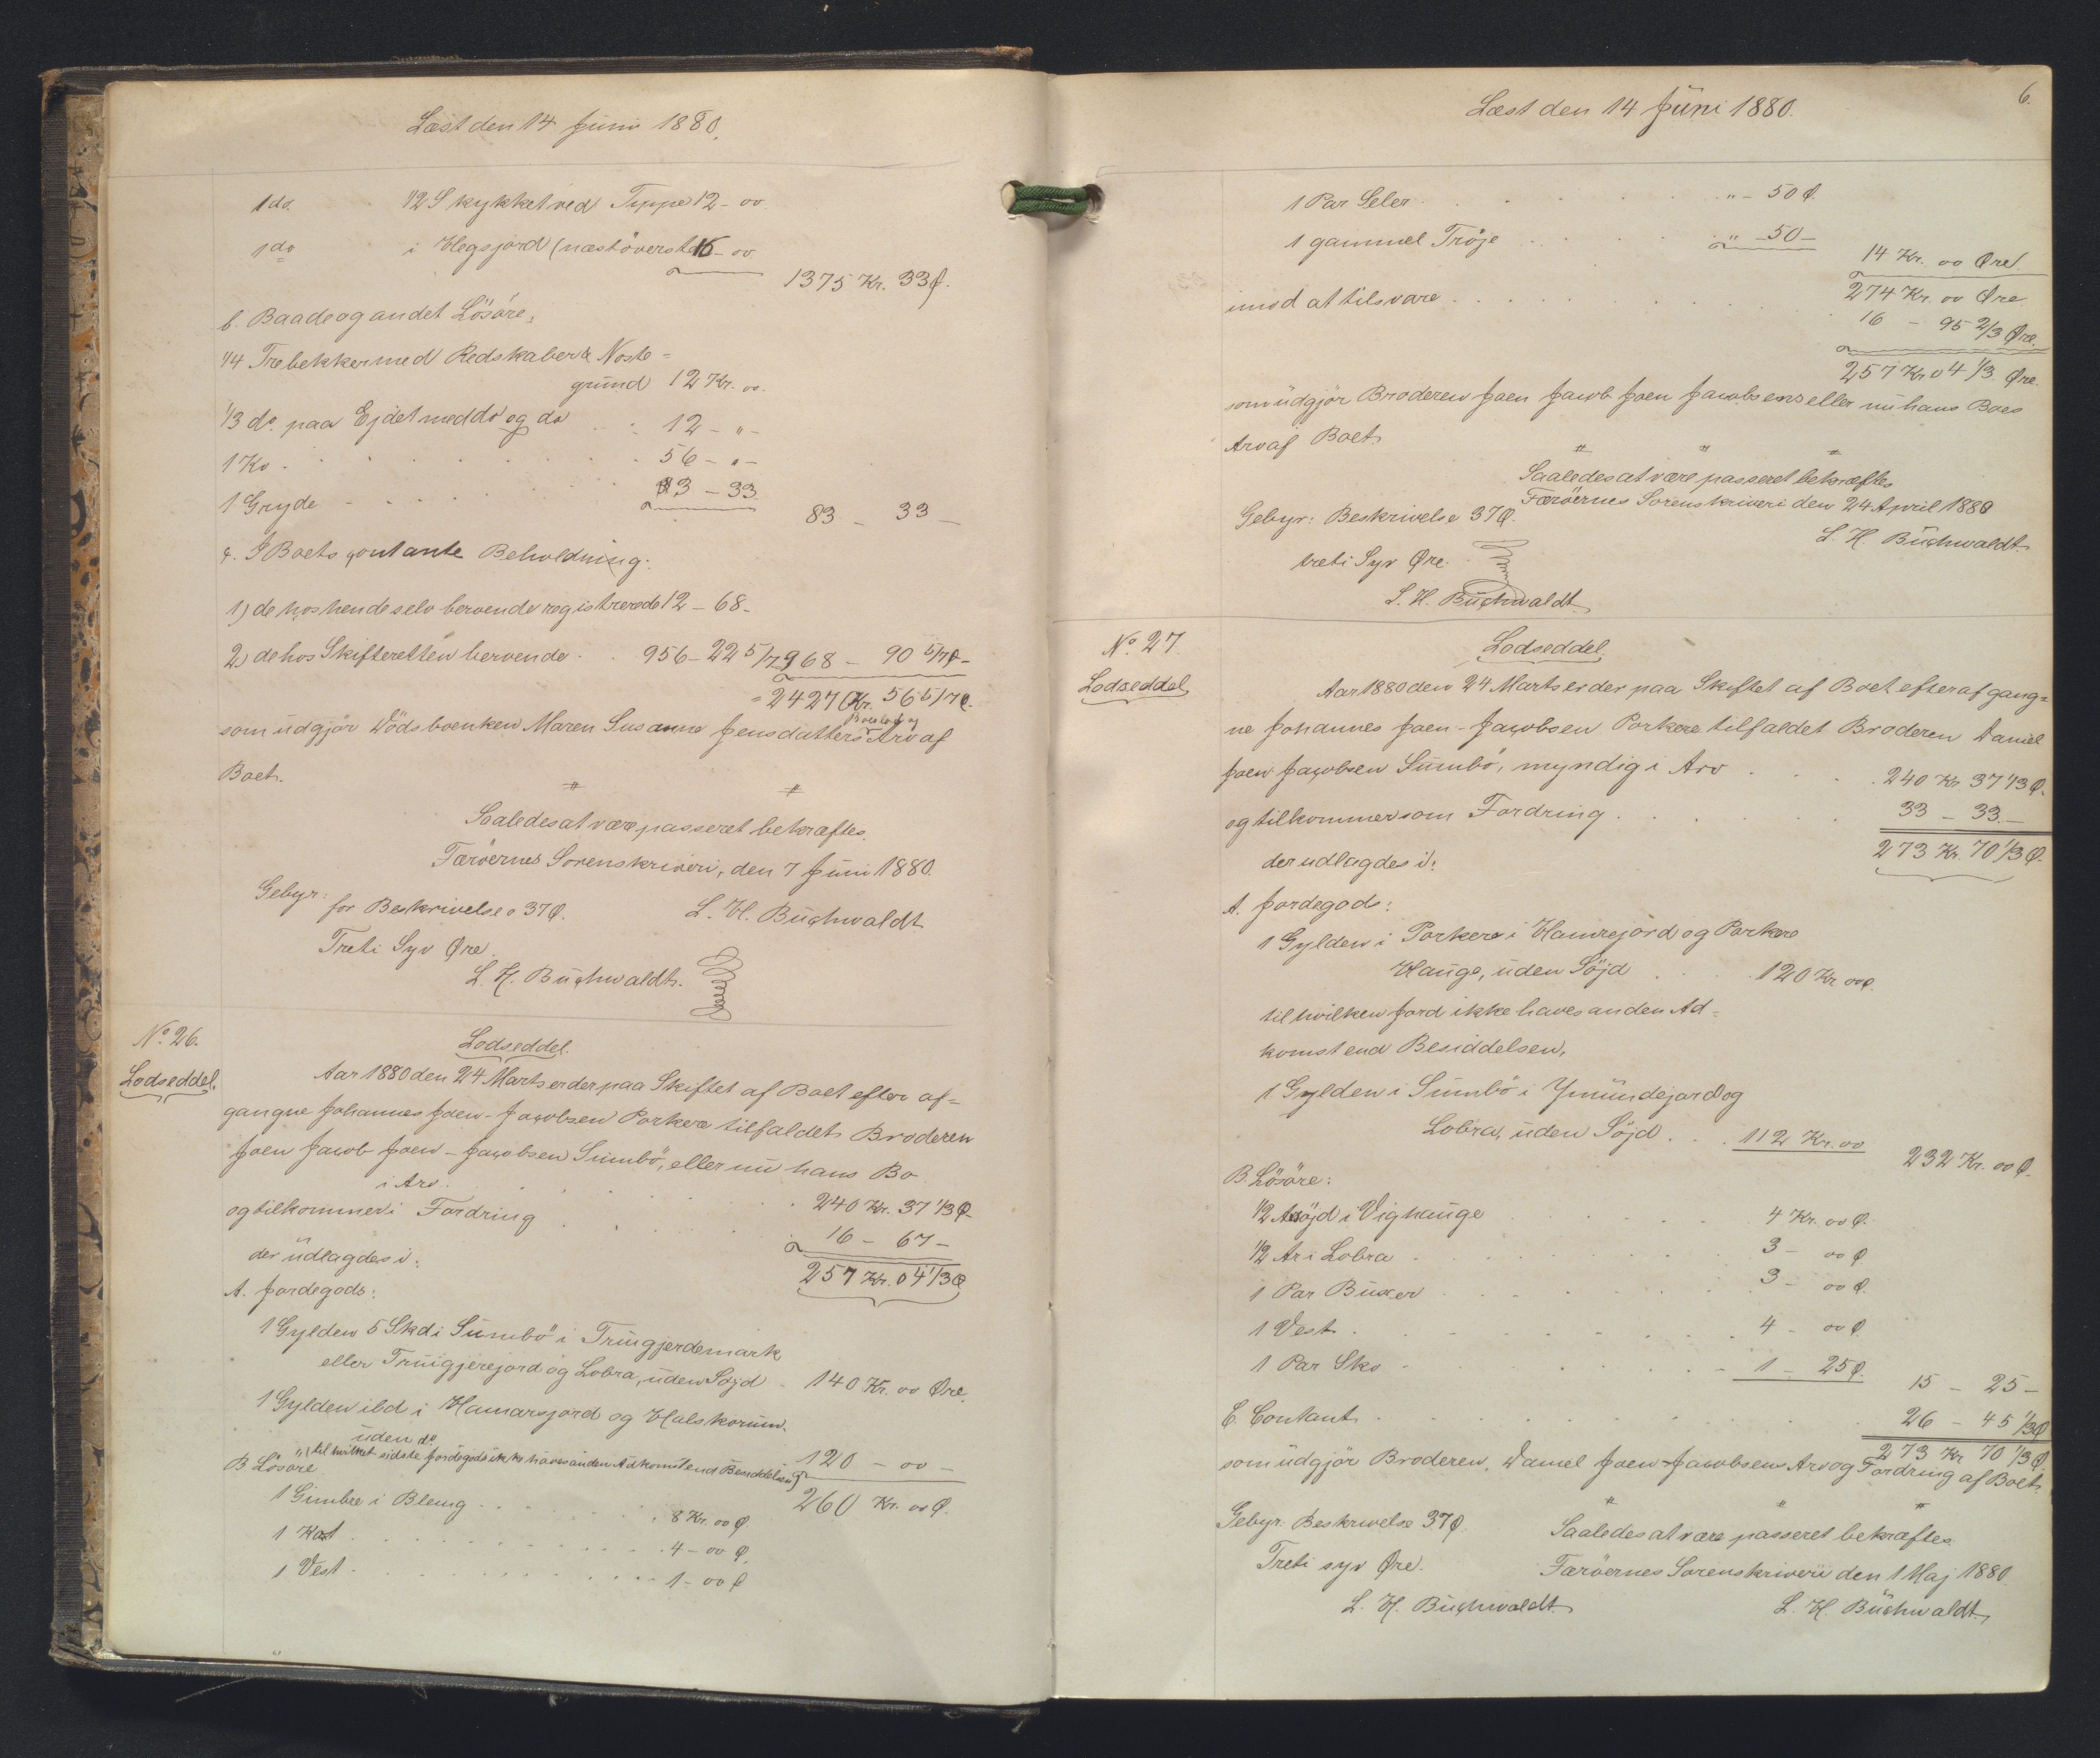 Læst den 14 Juni 1880.
1 do. 1/2 Skykket ved Typpe 12 - 00.
1 do i Hegsjord (næstöverste 16 - 00
1375 Kr. 33 Ø.
b. Baade og andet Lösöre,
1/4 Trebekker med Redskaber & Noste=
grund 12 Kr. 00.
1/3 do. paa Ejdet med do og do . . 12 - " -
1 Ko . . . 56 - " -
1 Gryde . . . 3 - 33
83 - 33 -
c. I Boets contante Beholdning:
1) de hos hende selv beroende registrerede 12 - 68 -
2) de hos Skifteretten beroende . . 956 - 22 5/7 968 - 90 5/7 Ø -
= 2427 Kr. 56 5/7 Ø.
som udgjör Dödsboenken Maren Susanne Jensdatters Boeslod og Arv af
Boet.
Saaledes at være passeret bekræftes.
Færöernes Sorenskriveri, den 7 Juni 1880.
Gebyr: for Beskrivelse 37 Ø. L. H. Buchwaldt
Treti Syv Øre.
L. H. Buchwaldt.
No. 26.
Lodseddel.
Lodseddel.
Aar 1880 den 24 Marts er der paa Skiftet af Boet efter af=
gangne Johannes Joen-Jacobsen Porkere tilfaldet Broderen
Joen Jacob Joen-Jacobsen Sumbö, eller nu hans Bo
i Arv . . . 240 Kr. 37 1/3 Ø
og tilkommer i Fordring . . . 16 - 67 -
der udlagdes i: 257 Kr. 04 1/3 Ø
A. Jordegods:
1 Gylden 5 Skd i Sumbö i Truigjerdemark
eller Truigjerejord og Lobra, uden Söjd - 140 Kr. 00 Øre.
1 Gylden ibd i Hamarsjord og Halskorum.
uden do. 120 - 00 -
") til hvilket sidste Jordegods ikke haves anden Adkomst end Besiddelsen
260 Kr. 00 Ø.
B. Lösöre
1 Gimber i Bleing . . . 8 Kr. 00 Ø
1 Hat . . . 4 - 00 Ø.
1 Vest . . . 1 - 00 Ø
6.
Læst den 14 Juni 1880.
1 Par Seler . . . " - 50 Ø.
1 gammel Tröje . . . " - 50 -
14 Kr. 00 Øre.
274 Kr. 00 Øre
imod at tilsvare . . . 16 - 95 2/3 Øre.
257 Kr 04 1/3 Øre.
som udgjör Broderen Joen Jacob Joen Jacobsens eller nu hans Boes
Arv af Boet.
Saaledes at være passeret bekræftes
Færöernes Sorenskriveri den 24 April 1880
Gebyr: Beskrivelse 37 Ø. L. H. Buchwaldt.
treti Syv Øre.
L. H. Buchwaldt.
No. 27.
Lodseddel
Lodseddel.
Aar 1880 den 24 Marts er der paa Skiftet af Boet efter afgang=
ne Johannes Joen-Jacobsen Porkere tilfaldet Broderen Daniel
Joen Jacobsen Sumbö, myndig i Arv . . . 240 Kr 37 1/3 Ø.
og tilkommer som Fordring . . . 33 - 33 -
der udlagdes i: 273 Kr. 70 1/3 Ø.
A. Jordegods:
1 Gylden i Porkere i Hamrejord og Porkere
Hauge, uden Söjd . . . 120 Kr. 00 Ø.
til hvilken Jord ikke haves anden Ad=
komst end Besiddelsen.
1 Gylden i Sumbö i Ymundejord og
Lobra, uden Söjd . . . 112 Kr. 00
232 Kr. 00 Ø.
B. Lösöre:
1/2 Asöjd i Vighauge . . . 4 Kr. 00 Ø.
1/2 Ar i Lobra . . . 3 - 00 Ø
1 Par Buxer . . . 3 - 00 Ø.
1 Vest . . . 4 - 00 Ø.
1 Par Sko . . . 1 - 25 Ø.
15 - 25 -
C. Contant . . . 26 - 45 1/3 Ø
273 Kr 70 1/3 Ø
som udgjör Broderen, Daniel Joen-Jacobsens Arv og Fordring af Boet.
Gebyr: Beskrivelse 37 Ø. Saaledes at være passeret bekræftes.
Treti syv Øre. Færöernes Sorenskriveri den 1 Maj 1880.
L. H. Buchwaldt. L. H. Buchwaldt.